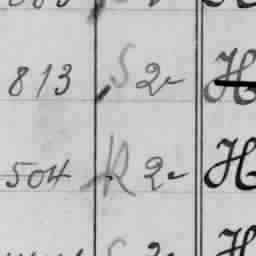 813 S 2 H
504 R 2 H